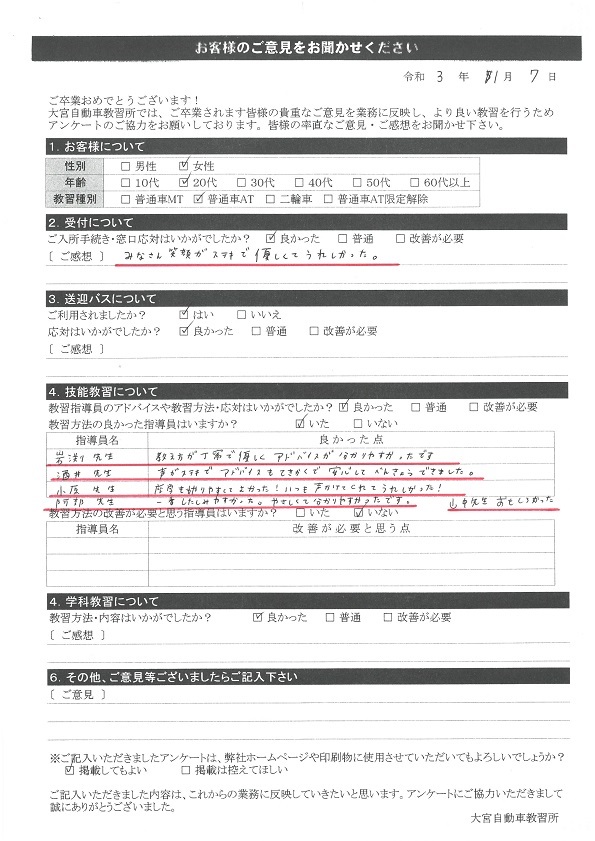 お客様のご意見をお聞かせください
令和 3 年 11月 7 日
ご卒業おめでとうございます！
大宮自動車教習所では、ご卒業されます皆様の貴重なご意見を業務に反映し、より良い教習を行うため
アンケートのご協力をお願いしております。皆様の率直なご意見・ご感想をお聞かせ下さい。
1. お客様について
性別 □ 男性 ☑ 女性
年齢 □ 10代 ☑ 20代 □ 30代 □ 40代 □ 50代 □ 60代以上
教習種別 □ 普通車MT ☑ 普通車AT □ 二輪車 □ 普通車AT限定解除
2. 受付について
ご入所手続き・窓口応対はいかがでしたか？ ☑ 良かった □ 普通 □ 改善が必要
〔 ご感想 〕 みなさん笑顔がステキで優しくてうれしかった。
3. 送迎バスについて
ご利用されましたか？ ☑ はい □ いいえ
応対はいかがでしたか？ ☑ 良かった □ 普通 □ 改善が必要
〔 ご感想 〕
4. 技能教習について
教習指導員のアドバイスや教習方法・応対はいかがでしたか？ ☑ 良かった □ 普通 □ 改善が必要
教習方法の良かった指導員はいますか？ ☑ いた □ いない
指導員名 良かった点
岩渕 先生 教え方が丁寧で優しくアドバイスが分かりやすかったです
酒井 先生 声がステキでアドバイスもてきかくで安心してべんきょうできました。
小原 先生 しやすくてよかった！いつも声かけてくれてうれしかった！
阿部 先生 一番したしみやすかった。やさしくて分かりやすかったです。 山中先生 おもしろかった
教習方法の改善が必要と思う指導員はいますか？ □ いた ☑ いない
指導員名 改善が必要と思う点
4. 学科教習について
教習方法・内容はいかがでしたか？ ☑ 良かった □ 普通 □ 改善が必要
〔 ご感想 〕
6. その他、ご意見等ございましたらご記入下さい
〔 ご意見 〕
※ご記入いただきましたアンケートは、弊社ホームページや印刷物に使用させていただいてもよろしいでしょうか？
☑ 掲載してもよい □ 掲載は控えてほしい
ご記入いただきました内容は、これからの業務に反映していきたいと思います。アンケートにご協力いただきまして
誠にありがとうございました。
大宮自動車教習所